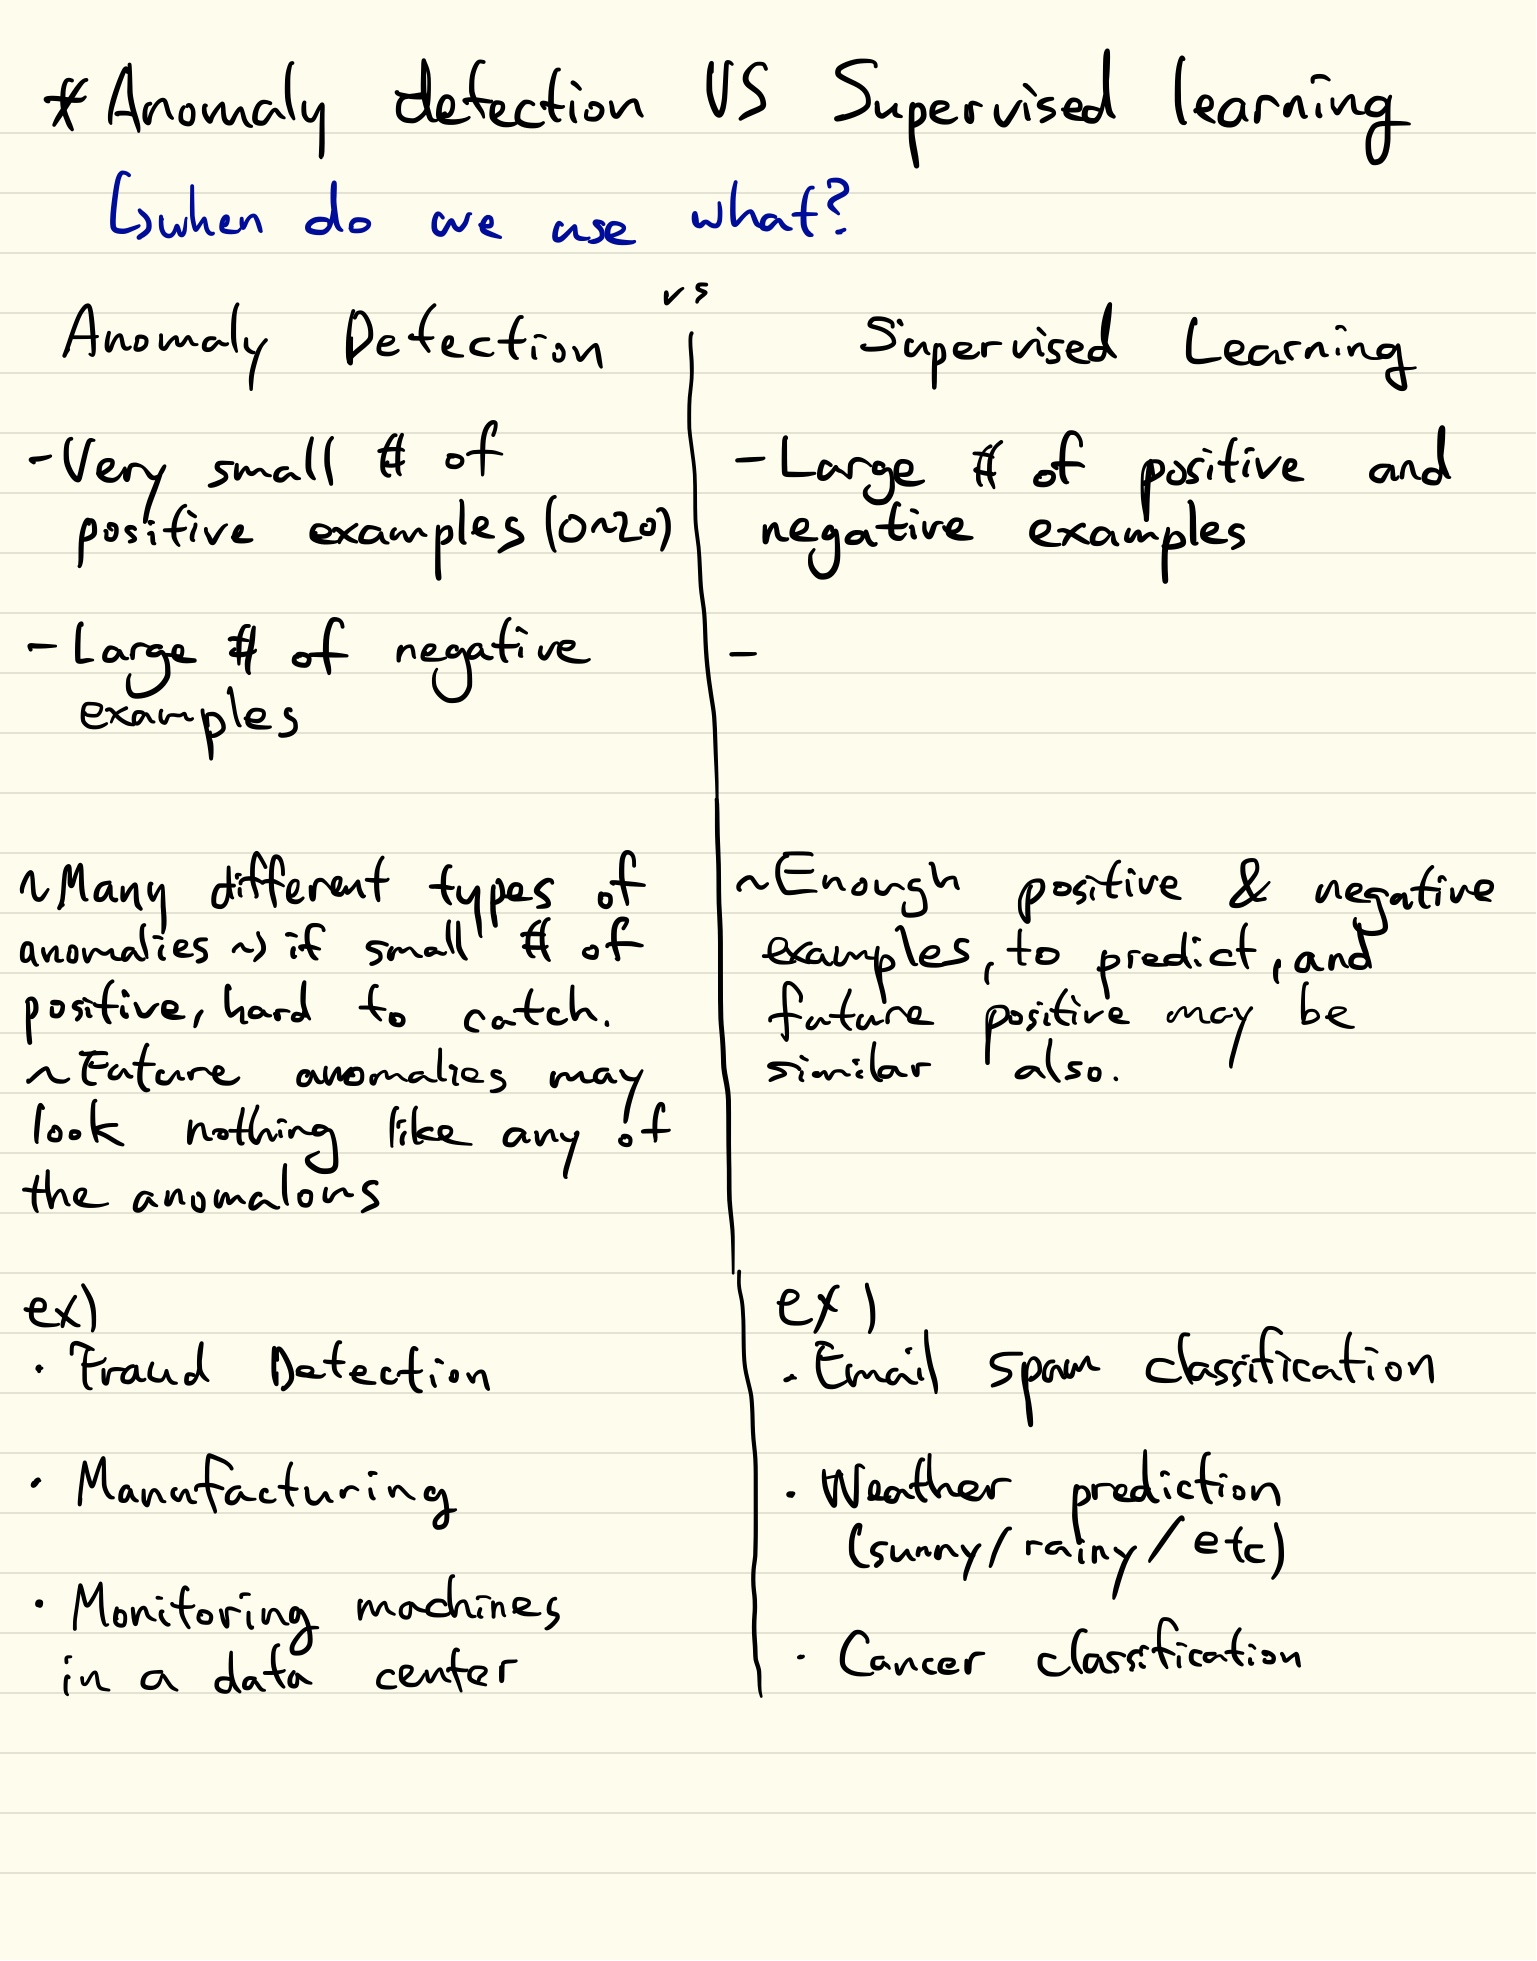 * Anomaly detection VS Supervised learning
↳ when do we use what?
vs
Anomaly Detection
- Very small # of
positive examples (0~20)
- Large # of negative
examples
~ Many different types of
anomalies ~> if small # of
positive, hard to catch.
~ Future anomalies may
look nothing like any of
the anomalous
ex)
· Fraud Detection
· Manufacturing
· Monitoring machines
in a data center
Supervised Learning
- Large # of positive and
negative examples
-
~ Enough positive & negative
examples, to predict, and
future positive may be
similar also.
ex)
· Email spam classification
· Weather prediction
(sunny/rainy/etc)
· Cancer classification